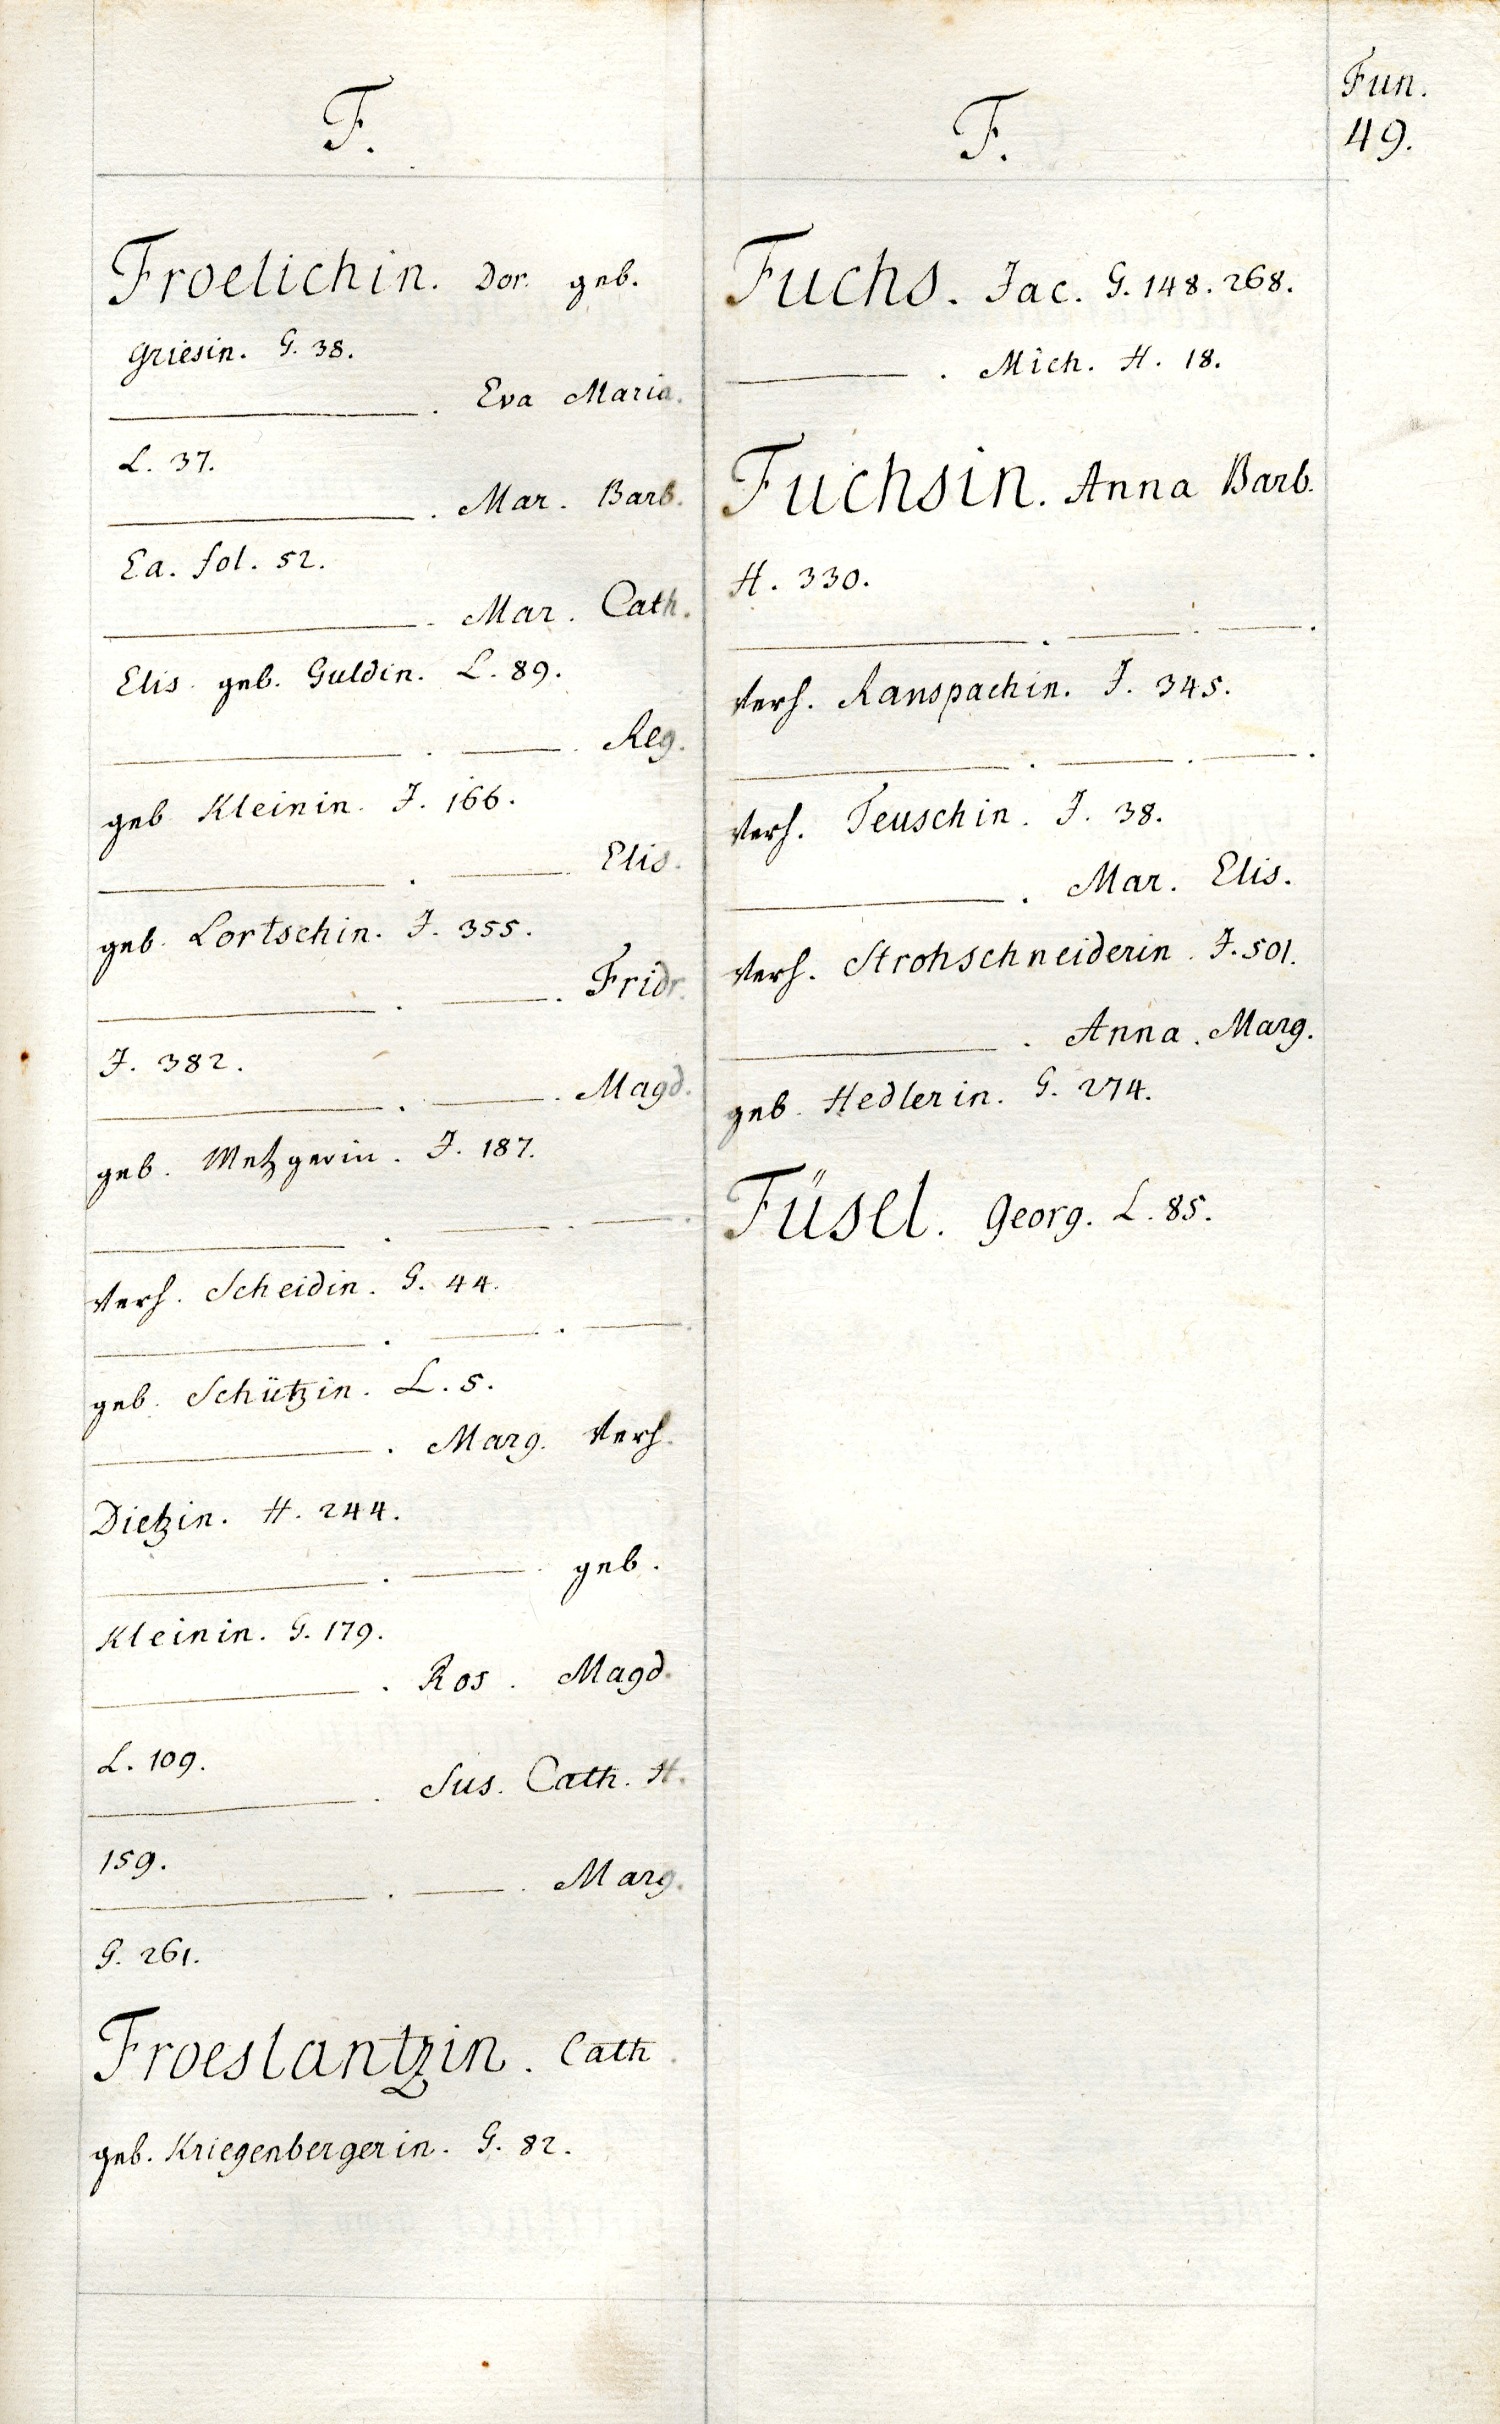 Fun.
49.
F.
Froelichin. Dor. geb.
Griesin. G. 38.
———. Eva Maria.
L. 37.
———. Mar. Barb.
Ea. fol. 52.
———. Mar. Cath.
Elis. geb. Guldin. L. 89.
———. ———. Reg.
geb Kleinin. J. 166.
———. ——— Elis.
geb. Lortschin. J. 355.
———. ———. Fridr.
J. 382.
———. ———. Magd.
geb. Metzgerin. J. 187.
———. ———. ———.
verh. Scheidin. G. 44.
———. ———. ———.
geb. Schützin. L. 5.
———. Marg. verh.
Dietzin. H. 244.
———. ———. geb.
Kleinin. G. 179.
———. Ros. Magd.
L. 109.
———. Sus. Cath. H.
159.
———. ———. Marg.
G. 261.
Froeslantzin. Cath.
geb. Kriegenbergerin. G. 82.
F.
Fuchs. Jac. G. 148. 268.
———. Mich. H. 18.
Fuchsin. Anna Barb.
H. 330.
———. ———. ———.
verh. Ranspachin. J. 345.
———. ———. ———.
verh. Teuschin. J. 38.
———. Mar. Elis.
verh. Strohschneiderin. J. 501.
———. Anna. Marg.
geb. Hedlerin. G. 274.
Füsel. Georg. L. 85.